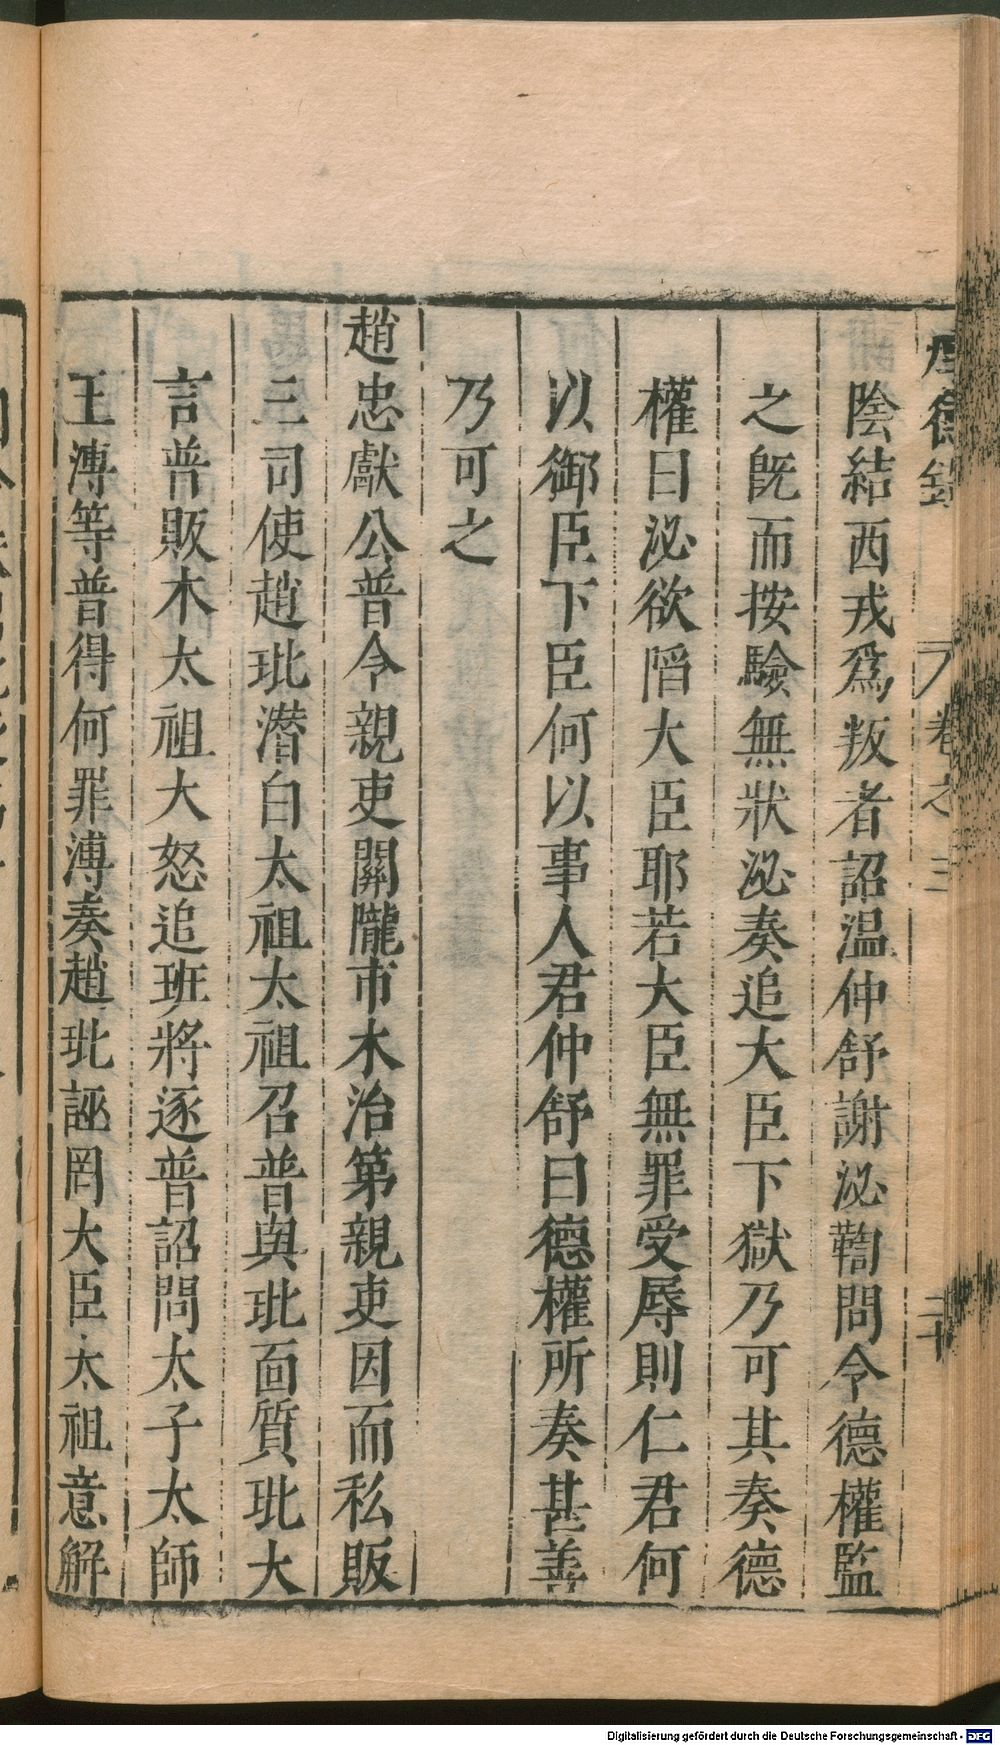 陰結西戎爲叛者詔温仲舒謝泌鞫問令德權監
之既而按驗無狀泌奏追大臣下獄乃可其奏德
權曰泌欲陷大臣耶若大臣無罪受辱則仁君何
以御臣下臣何以事人君仲舒曰德權所奏甚善
乃可之
趙忠獻公普令親吏關隴市木治第親吏因而私販
三司使趙玭潛白太祖太祖召普與玭面質玭大
言普販木太祖大怒追班將逐普詔問太子太師
王溥等普得何罪溥奏趙玭誣罔大臣太祖意解
卷之三
二十
Digitalisierung gefördert durch die Deutsche Forschungsgemeinschaft - DFG